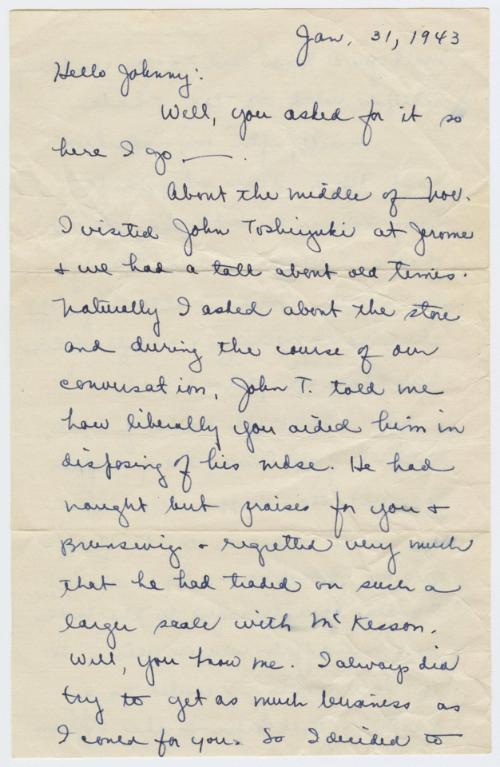 Jan. 31, 1943
Hello Johnny:
Well, you asked for it so
here I go —.
About the middle of Nov.
I visited John Toshiyuki at Jerome
& we had a talk about old times.
Naturally I asked about the store
and during the course of our
conversation, John T. told me
how liberally you aided him in
disposing of his mdse. He had
naught but praises for you &
Brunswig & regretted very much
that he had traded on such a
larger scale with McKesson.
Well, you know me. I always did
try to get as much business as
I coned for you. So I decided to